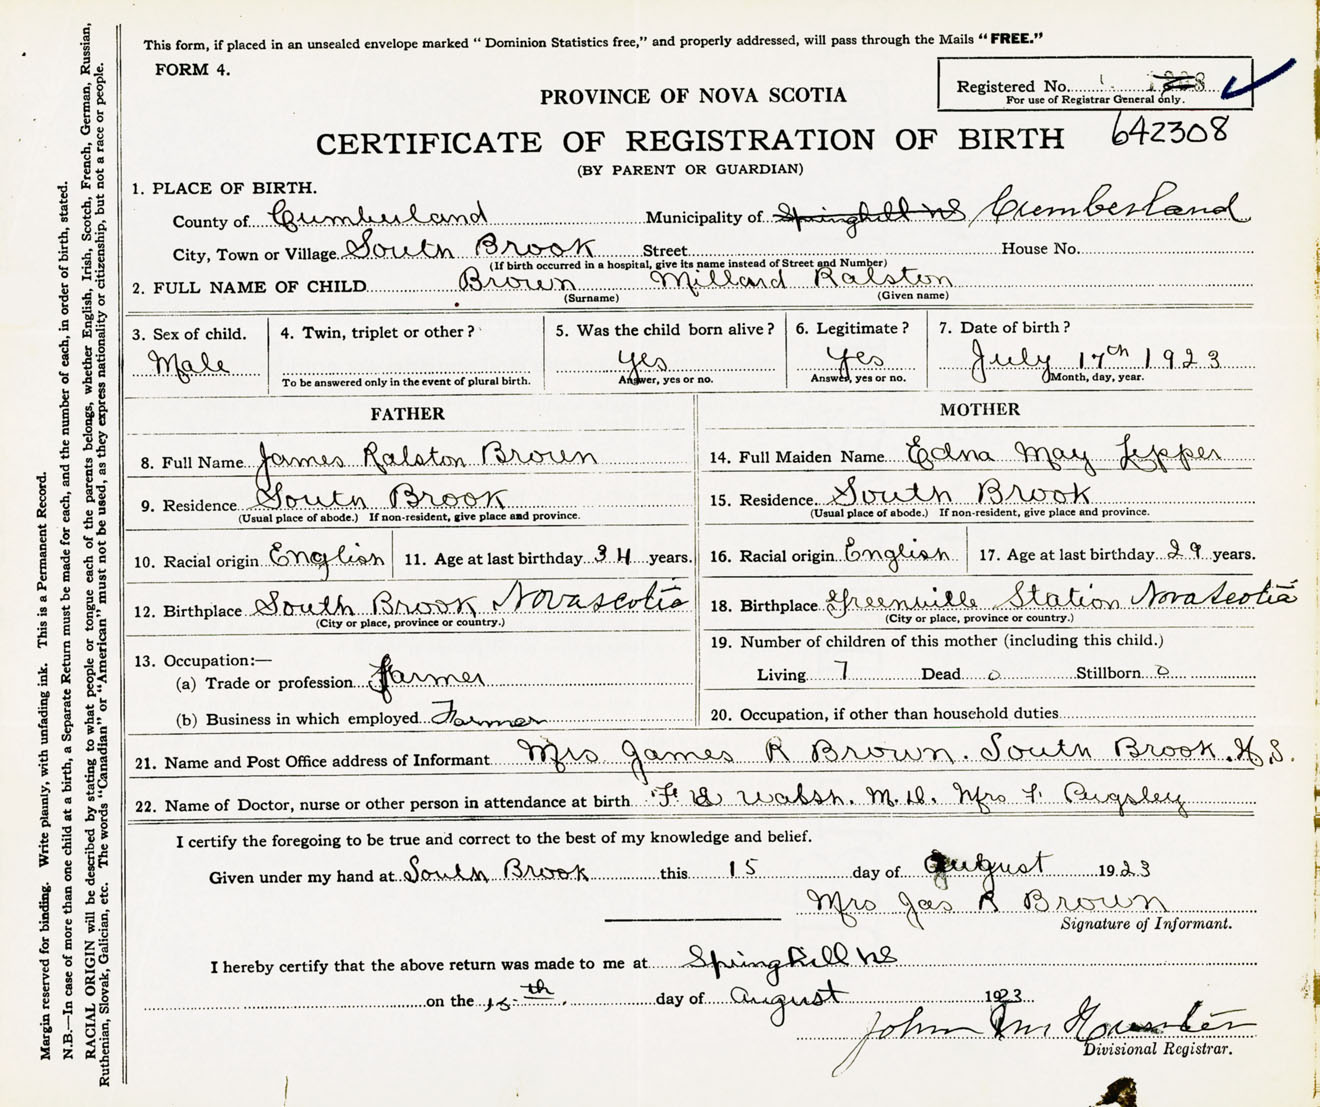 This form, if placed in an unsealed envelope marked " Dominion Statistics free," and properly addressed, will pass through the Mails "FREE."
FORM 4.
Registered No.
For use of Registrar General only.
PROVINCE OF NOVA SCOTIA
CERTIFICATE OF REGISTRATION OF BIRTH 642308
(BY PARENT OR GUARDIAN)
1. PLACE OF BIRTH.
County of Cumberland Municipality of Springhill NS Cumberland
City, Town or Village South Brook Street House No.
(If birth occurred in a hospital, give its name instead of Street and Number)
2. FULL NAME OF CHILD Brown Millard Ralston
(Surname) (Given name)
3. Sex of child. 4. Twin, triplet or other? 5. Was the child born alive? 6. Legitimate? 7. Date of birth?
Male yes yes July 17th 1923
To be answered only in the event of plural birth. Answer, yes or no. Answer, yes or no. Month, day, year.
FATHER MOTHER
8. Full Name James Ralston Brown 14. Full Maiden Name Edna May Lepper
9. Residence South Brook 15. Residence South Brook
(Usual place of abode.) If non-resident, give place and province. (Usual place of abode.) If non-resident, give place and province.
10. Racial origin English 11. Age at last birthday 34 years. 16. Racial origin English 17. Age at last birthday 29 years.
12. Birthplace South Brook Nova Scotia 18. Birthplace Greenville Station Nova Scotia
(City or place, province or country.) (City or place, province or country.)
13. Occupation:— 19. Number of children of this mother (including this child.)
(a) Trade or profession Farmer Living 7 Dead 0 Stillborn 0
(b) Business in which employed Farmer 20. Occupation, if other than household duties
21. Name and Post Office address of Informant Mrs James R Brown. South Brook. N.S.
22. Name of Doctor, nurse or other person in attendance at birth F. E Walsh. M.D. Mrs F. Pugsley
I certify the foregoing to be true and correct to the best of my knowledge and belief.
Given under my hand at South Brook this 15 day of August 1923
Mrs Jas R Brown
Signature of Informant.
I hereby certify that the above return was made to me at Springhill NS
on the 15th day of August 1923
John
Divisional Registrar.
Margin reserved for binding. Write plainly, with unfading ink. This is a Permanent Record.
N.B.—In case of more than one child at a birth, a Separate Return must be made for each, and the number of each, in order of birth, stated.
RACIAL ORIGIN will be described by stating to what people or tongue each of the parents belongs, whether English, Irish, Scotch, French, German, Russian,
Ruthenian, Slovak, Galician, etc. The words "Canadian" or "American" must not be used, as they express nationality or citizenship, but not a race or people.